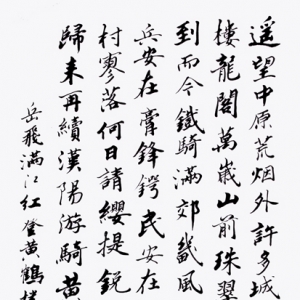 遥望中原荒烟外許多城
樓龍閣萬歲山前珠翠
到而今鐵騎滿郊畿風
兵安在膏鋒鍔民安在
村寥落何日請纓提銳
歸来再續漢陽游騎黄
岳飛滿江红登黄鶴樓